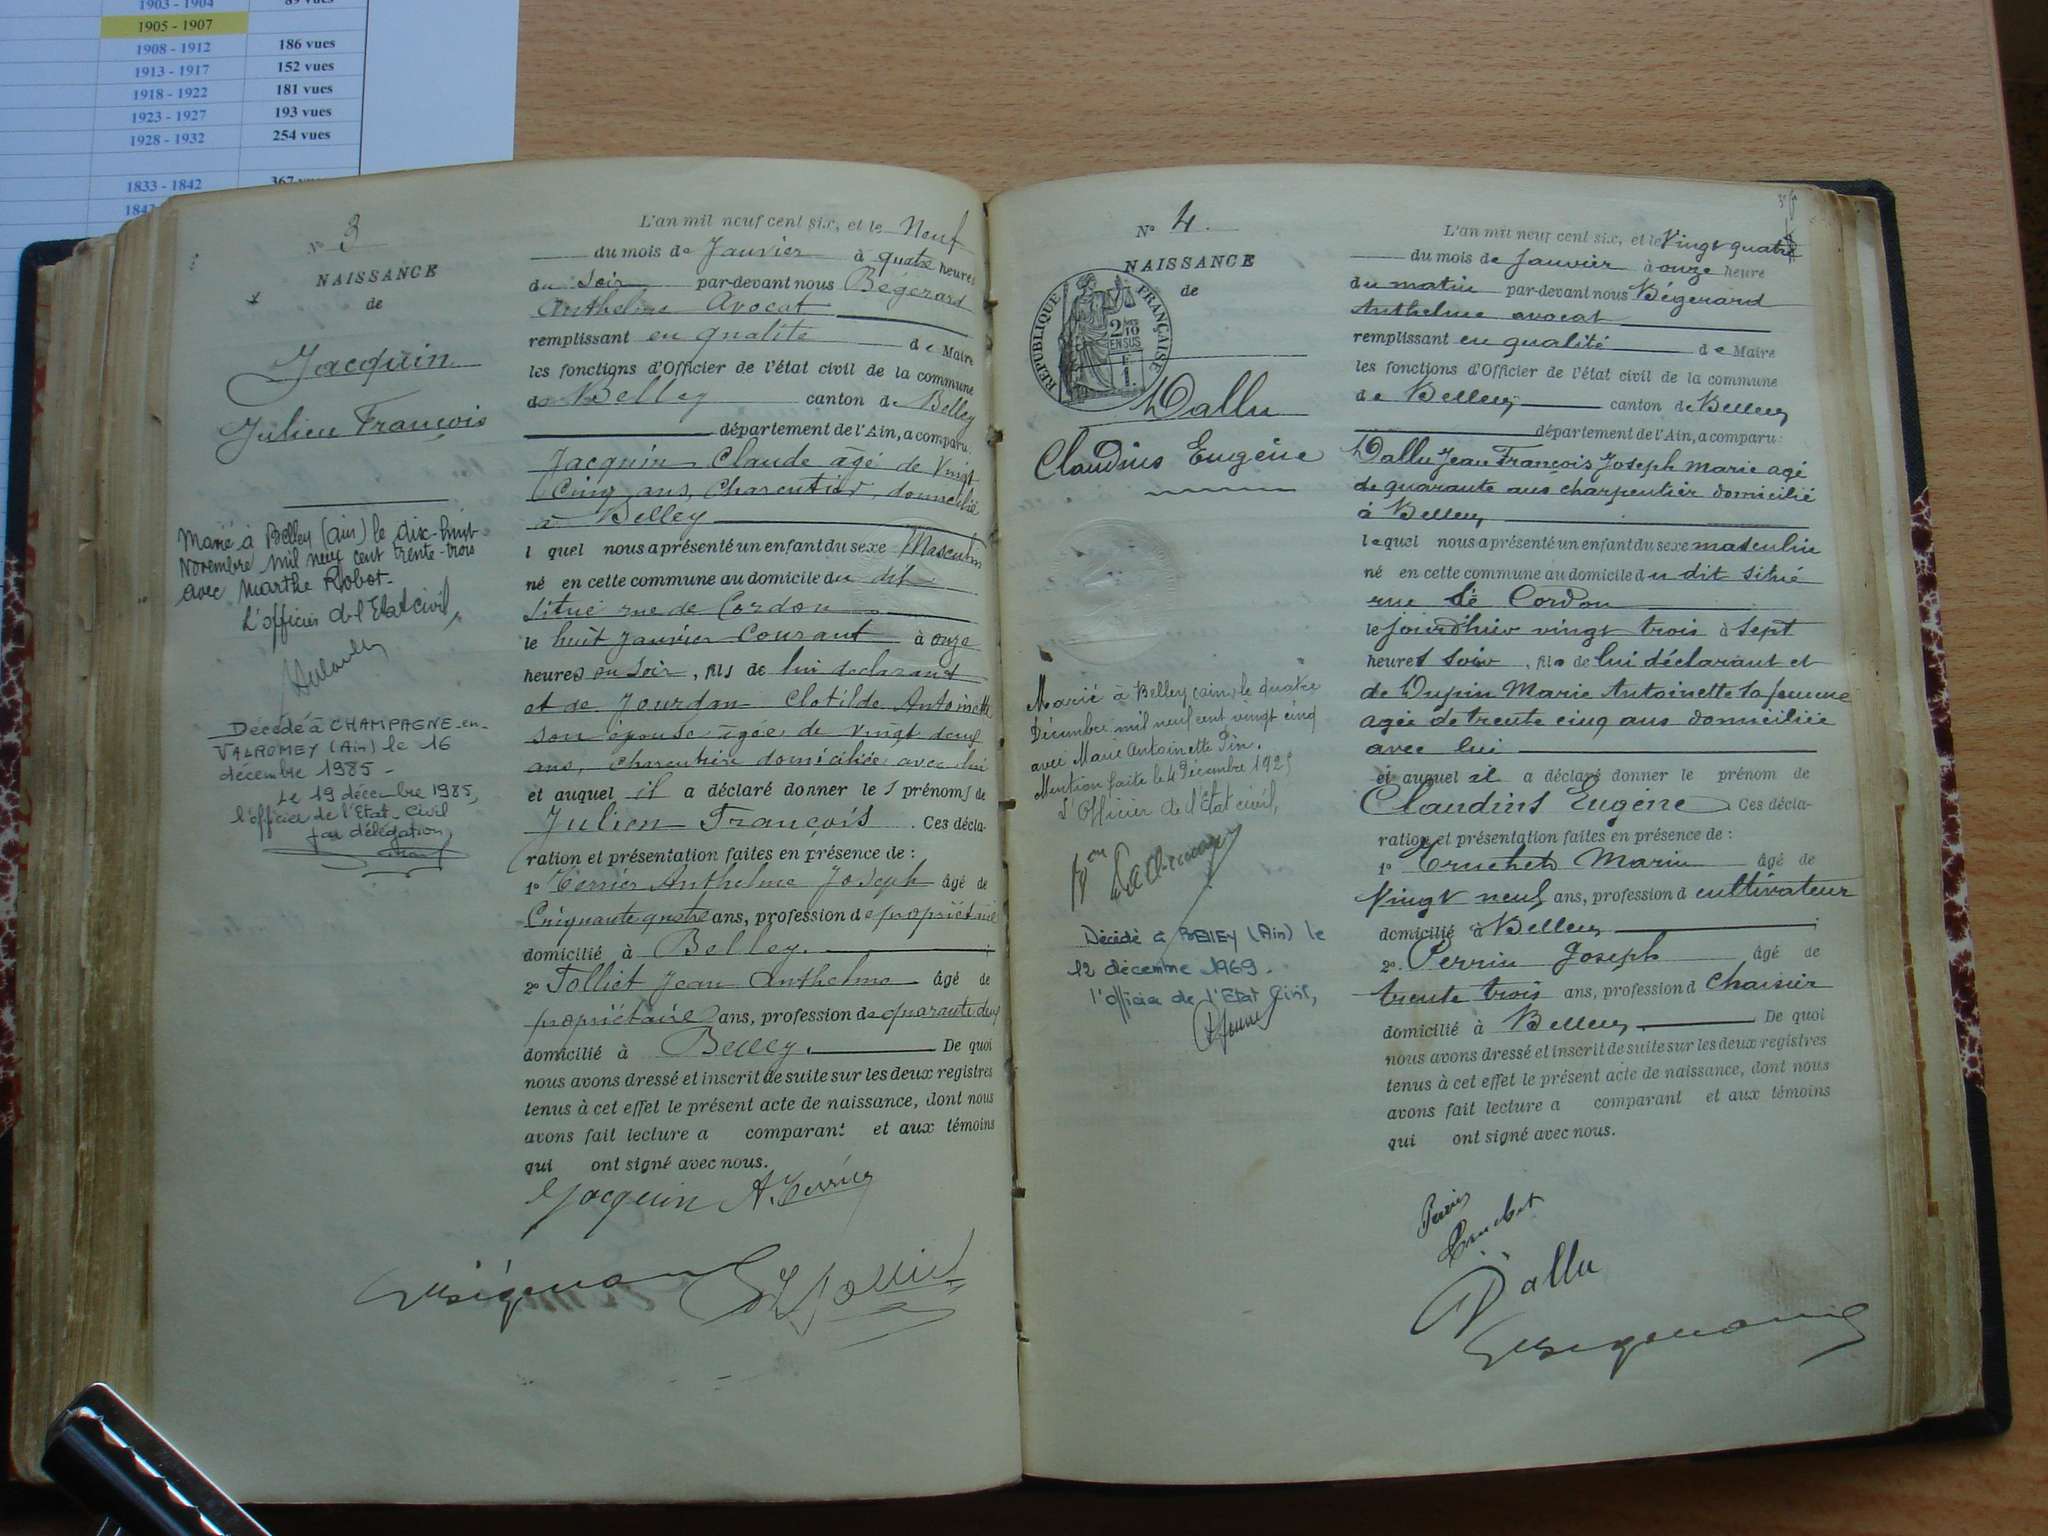 1903 - 1904 89 vues
1905 - 1907
1908 - 1912 186 vues
1913 - 1917 152 vues
1918 - 1922 181 vues
1923 - 1927 193 vues
1928 - 1932 254 vues
1833 - 1842 367 vues
N° 3
NAISSANCE
de
Jacquin
Julien François
Marié à Belley (ain) le dix-huit
Novembre mil neuf cent trente-trois
avec Marthe Robot.
L'officier de l'Etat civil,
Décédé à CHAMPAGNE-en-
VALROMEY (Ain) le 16
décembre 1985 -
Le 19 décembre 1985,
l'officier de l'Etat-Civil
par délégation,
L'an mil neuf cent six, et le Neuf
du mois de Janvier à quatre heures
du Soir par-devant nous Bégerard
Anthelme Avocat
remplissant en qualité de Maire
les fonctions d'Officier de l'état civil de la commune
de Belley canton de Belley
département de l'Ain, a comparu:
Jacquin Claude âgé de Vingt
Cinq ans, Charcutier, domicilié
à Belley
l quel nous a présenté un enfant du sexe Masculin
né en cette commune au domicile du dit
situé rue de Cordon
le huit Janvier Courant à onze
heures du soir, fils de lui déclarant
et de Jourdan Clotilde Antoinette
son épouse âgée de vingt deux
ans, charcutière domiciliée avec lui
et auquel il a déclaré donner les prénoms de
Julien François. Ces décla-
ration et présentation faites en présence de :
1° Terrier Anthelme Joseph âgé de
Cinquante quatre ans, profession de propriétaire
domicilié à Belley.
2° Tolliet Jean Anthelme âgé de
propriétaire ans, profession de quarante deux
domicilié à Belley. De quoi
nous avons dressé et inscrit de suite sur les deux registres
tenus à cet effet le présent acte de naissance, dont nous
avons fait lecture a comparant et aux témoins
qui ont signé avec nous.
Jacquin A. Terrier
N° 4.
NAISSANCE
de
RÉPUBLIQUE FRANÇAISE
2/10
EN SUS
1F
Dallu
Claudius Eugène
Marié à Belley (ain) le quatre
Décembre mil neuf cent vingt cinq
avec Marie Antoinette Pin.
Mention faite le 4 Décembre 1925
L'Officier de l'Etat civil,
Décédé à BELLEY (Ain) le
12 décembre 1969.
l'officier de l'Etat Civil,
L'an mil neuf cent six, et le Vingt quatre
du mois de Janvier à onze heure
du matin par-devant nous Bégerard
Anthelme avocat
remplissant en qualité de Maire
les fonctions d'Officier de l'état civil de la commune
de Belley canton de Belley
département de l'Ain, a comparu:
Dallu Jean François Joseph Marie agé
de quarante ans charpentier domicilié
à Belley
lequel nous a présenté un enfant du sexe masculin
né en cette commune au domicile du dit situé
rue de Cordon
le jourd'hui vingt trois à sept
heures soir, fils de lui déclarant et
de Dupin Marie Antoinette sa femme
agée de trente cinq ans domiciliée
avec lui
et auquel il a déclaré donner le prénom de
Claudius Eugène Ces décla-
ration et présentation faites en présence de :
1° Truchet Marin âgé de
Vingt neuf ans, profession d cultivateur
domicilié à Belley
2° Perrin Joseph âgé de
trente trois ans, profession d Chaisier
domicilié à Belley De quoi
nous avons dressé et inscrit de suite sur les deux registres
tenus à cet effet le présent acte de naissance, dont nous
avons fait lecture a comparant et aux témoins
qui ont signé avec nous.
Perrin
Truchet
Dallu